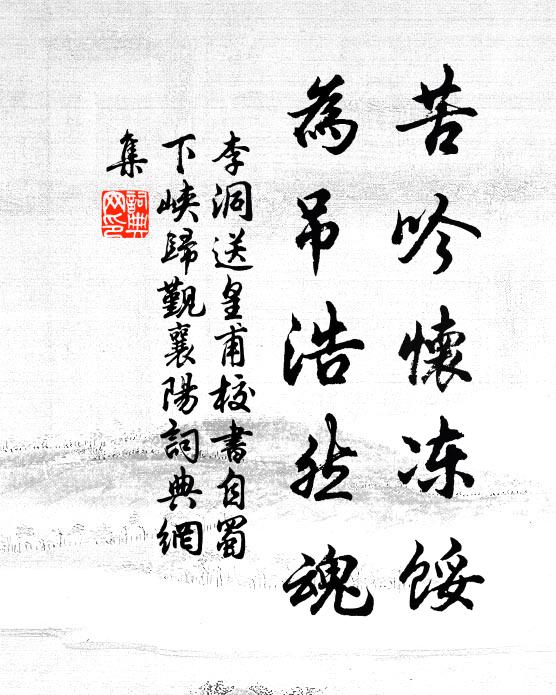 苦吟懷冻馁
為吊浩然魂
李洞送皇甫校書自蜀
下峽歸覲襄陽詞典網
集
詞典
网印